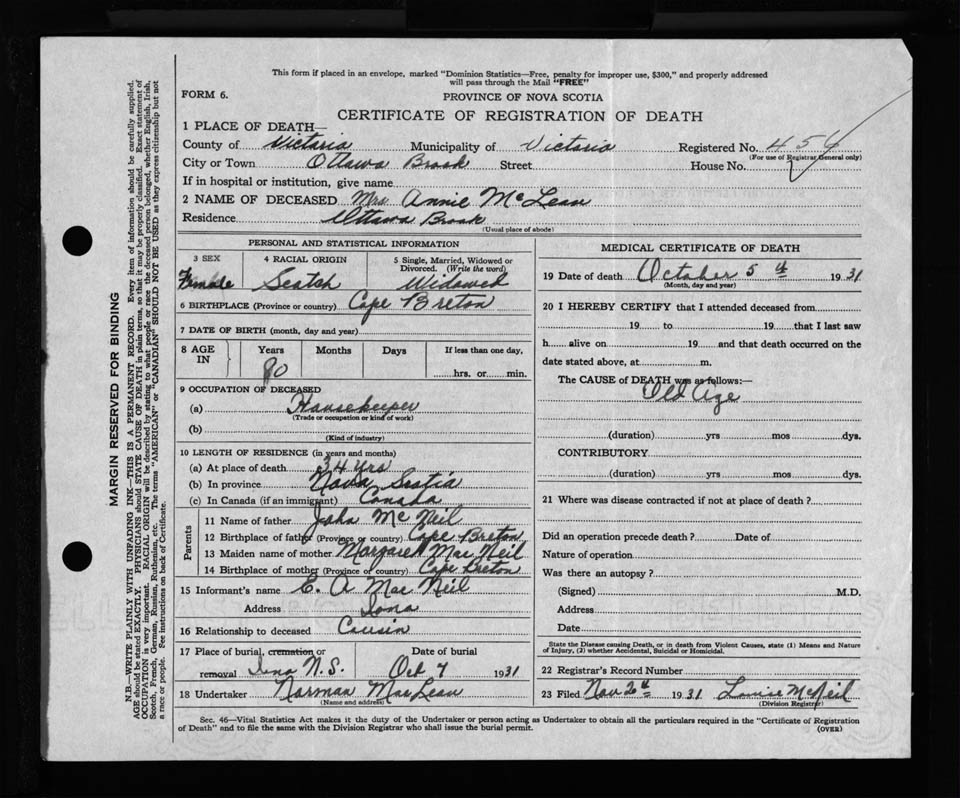 This form if placed in an envelope, marked "Dominion Statistics—Free, penalty for improper use, $300," and properly addressed
will pass through the Mail "FREE"
FORM 6.
PROVINCE OF NOVA SCOTIA
CERTIFICATE OF REGISTRATION OF DEATH
1 PLACE OF DEATH—
County of Victoria Municipality of Victoria Registered No. 454
(For use of Registrar General only)
City or Town Ottawa Brook Street House No.
If in hospital or institution, give name
2 NAME OF DECEASED Mrs Annie McLean
Residence Ottawa Brook
(Usual place of abode)
PERSONAL AND STATISTICAL INFORMATION
3 SEX 4 RACIAL ORIGIN 5 Single, Married, Widowed or
Divorced. (Write the word)
Female Scotch Widowed
6 BIRTHPLACE (Province or country) Cape Breton
7 DATE OF BIRTH (month, day and year)
8 AGE IN Years Months Days If less than one day,
80 hrs. or min.
9 OCCUPATION OF DECEASED
(a) Housekeeper
(Trade or occupation or kind of work)
(b)
(Kind of industry)
10 LENGTH OF RESIDENCE (in years and months)
(a) At place of death 34 yrs
(b) In province Nova Scotia
(c) In Canada (if an immigrant) Canada
Parents
11 Name of father John McNeil
12 Birthplace of father (Province or country) Cape Breton
13 Maiden name of mother Margaret MacNeil
14 Birthplace of mother (Province or country) Cape Breton
15 Informant's name E. A MacNeil
Address Iona
16 Relationship to deceased Cousin
17 Place of burial, cremation or Date of burial
removal Iona N.S. Oct 7 1931
18 Undertaker Norman MacLean
(Name and address)
MEDICAL CERTIFICATE OF DEATH
19 Date of death October 5th 1931
(Month, day and year)
20 I HEREBY CERTIFY that I attended deceased from
19 to 19 that I last saw
h alive on 19 and that death occurred on the
date stated above, at m.
The CAUSE of DEATH was as follows:—
Old Age
(duration) yrs mos dys.
CONTRIBUTORY
(duration) yrs mos dys.
21 Where was disease contracted if not at place of death ?
Did an operation precede death ? Date of
Nature of operation
Was there an autopsy ?
(Signed) M.D.
Address
Date
State the Disease causing Death, or in death from Violent Causes, state (1) Means and Nature
of Injury, (2) whether Accidental, Suicidal or Homicidal.
22 Registrar's Record Number
23 Filed Nov 2th 1931 Louise McNeil
(Division Registrar)
Sec. 46—Vital Statistics Act makes it the duty of the Undertaker or person acting as Undertaker to obtain all the particulars required in the "Certificate of Registration
of Death" and to file the same with the Division Registrar who shall issue the burial permit.
(OVER)
MARGIN RESERVED FOR BINDING
N.B.—WRITE PLAINLY WITH UNFADING INK—THIS IS A PERMANENT RECORD. Every item of information should be carefully supplied.
AGE should be stated EXACTLY. PHYSICIANS should STATE CAUSE OF DEATH in plain terms, so that it may be properly classified. Exact statement of
OCCUPATION is very important. RACIAL ORIGIN will be described by stating to what people or race the deceased person belonged, whether English, Irish,
Scotch, French, German, Russian, Ruthenian, etc. The terms "AMERICAN" or "CANADIAN" SHOULD NOT BE USED as they express citizenship but not
a race or people. See instructions on back of Certificate.